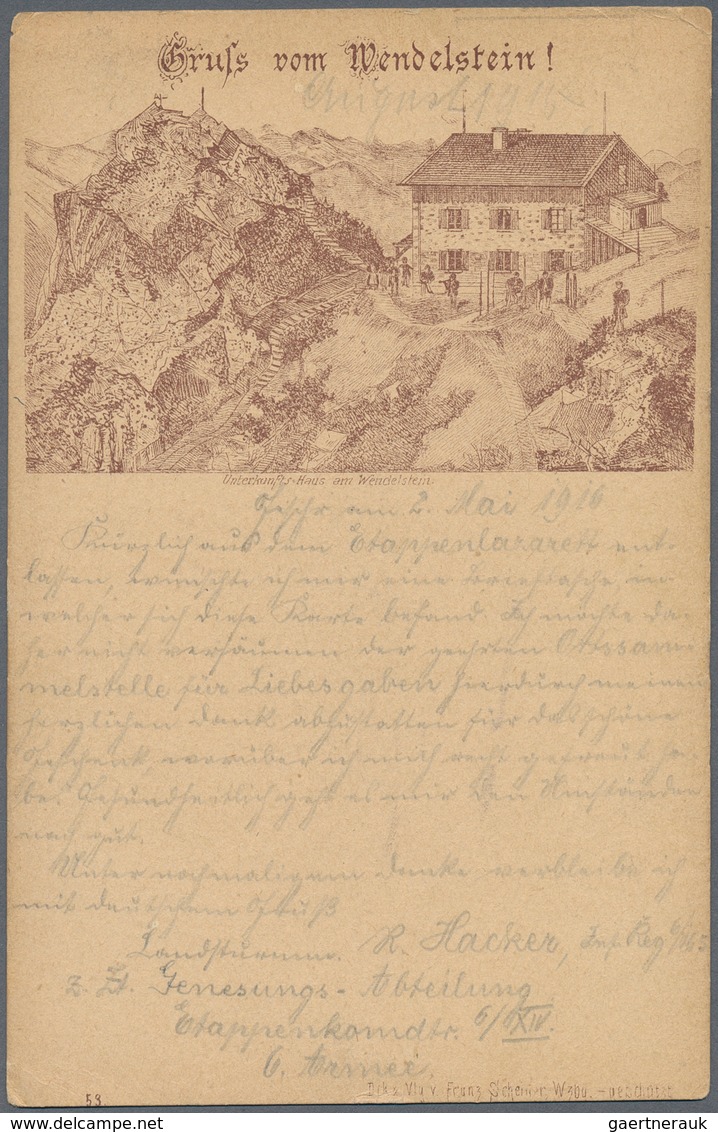 Gruss vom Wendelstein!
August 191
Unterkunfts-Haus am Wendelstein.
am 2. Mai 1916
Kürzlich aus dem Etappenlazarett ent-
lassen, wünschte ich mir eine Brieftasche in
welcher sich diese Karte befand. Ich möchte da-
her nicht versäumen der geehrten Ortssam-
melstelle für Liebesgaben hierdurch meinen
herzlichen Dank abzustatten für das schöne
Geschenk, worüber ich mich recht gefreut ha-
be. Gesundheitlich geht es mir den Umständen
nach gut.
Unter nochmaligem Danke verbleibe ich
mit deutschem Gruß
Landsturmm. R. Hacker, Inf. Reg
z. Zt. Genesungs-Abteilung
Etappenkomdtr. 6/XIV.
6. Armee.
53. Dr. & Vlg v. Franz Scheiner, Wzbg. - geschützt